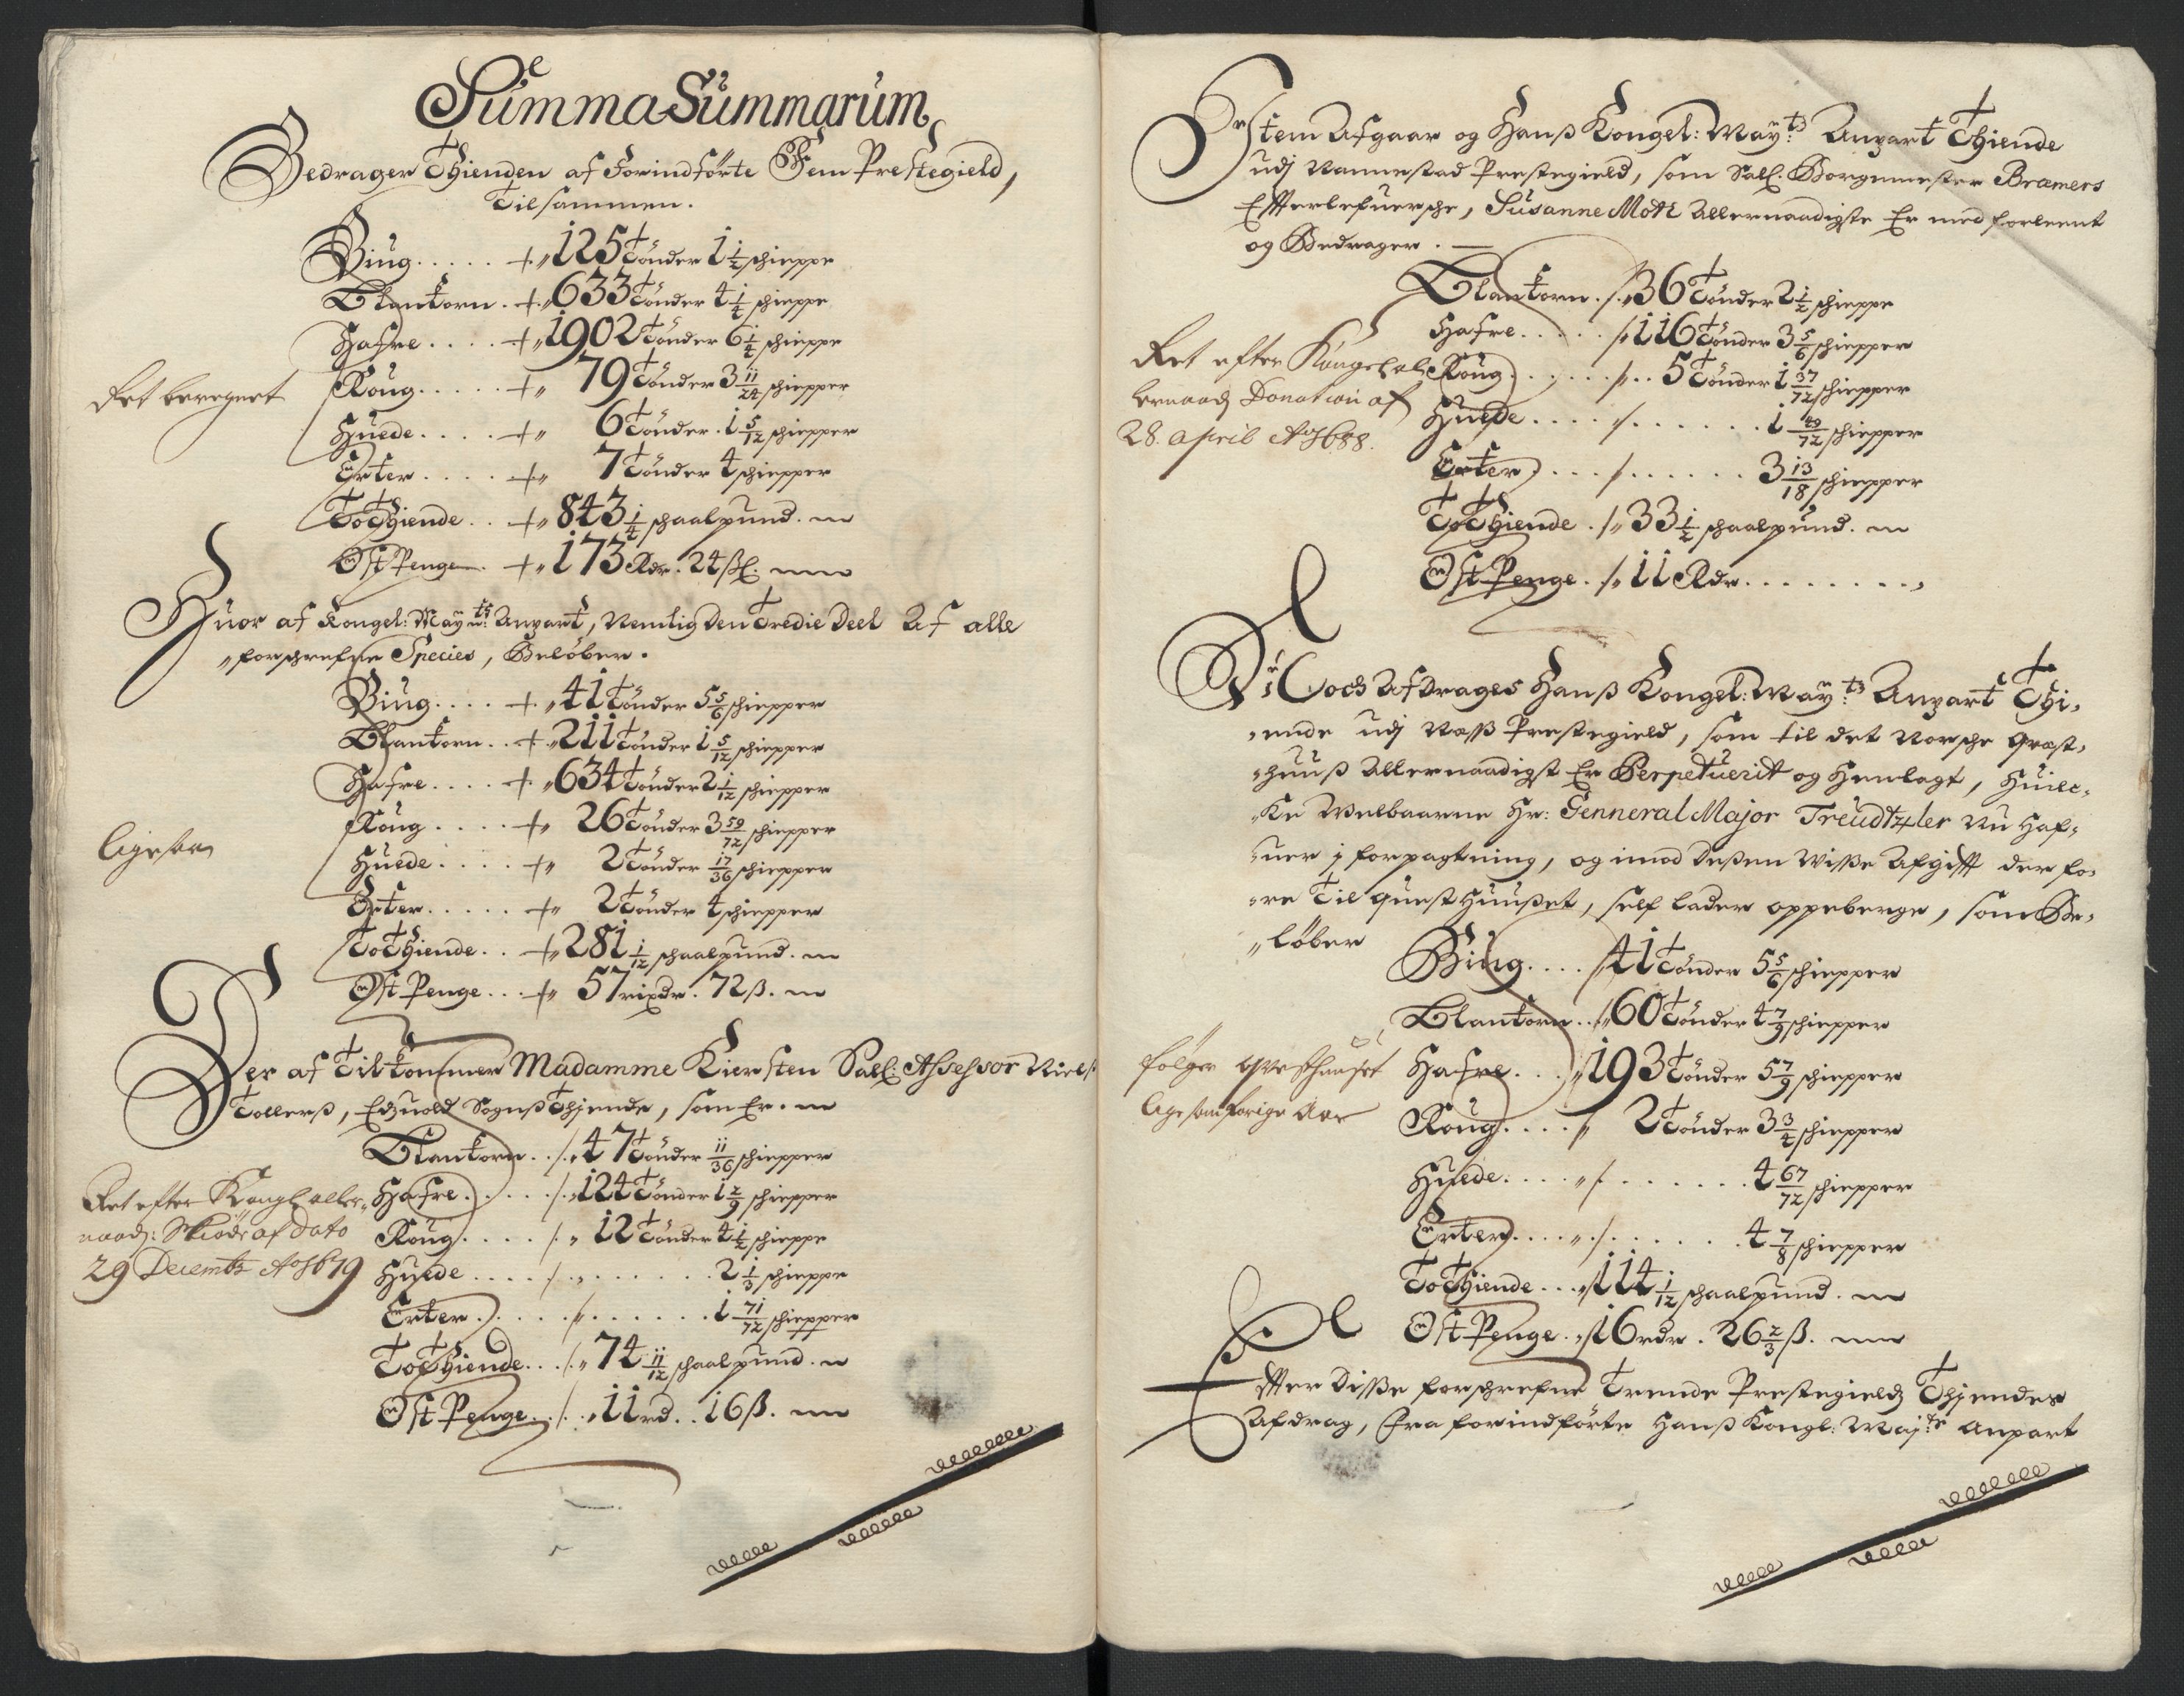 Summa Summarum
Bedrager Thienden af Forindförte Fem Prestegield,
Tilsammen.
Biug..... 125 Tönder 1 1/2 schieppe
Blantkorn. 633 Tönder 4 1/4 schieppe
Hafre.... 1902 Tönder 6 1/4 schieppe
Roug..... 79 Tönder 3 11/24 schiepper
Ret beregnet
Huede.... 6 Tönder. 1 5/12 schiepper
Erter..... 7 Tönder 4 schiepper
ToThiende.. 843 1/4 schaalpund.
Ost Penge. 173 Rdr. 24 ßl.
Huor af Kongel: Mayts: Anpart, Nemlig Den Tredie Deel Af alle
forschrefne Species, Belöber.
Biug.... 41 Tönder 5 5/6 schiepper
Blantkorn.. 211 Tönder 1 5/12 schiepper
Hafre.... 634 Tönder 2 1/12 schiepper
Roug.... 26 Tönder 3 59/72 schiepper
ligesaa
Huede.... 2 Tönder 17/36 schiepper
Erter..... 2 Tönder 4 schiepper
ToThiende.. 281 1/12 schaalpund.
Ost Penge... 57 rixdr. 72 ß.
Der af Tilkommer Madamme Kiersten Sall: Assessor Niels
Tollerß, Edzuold Sognß Thjende, som Er.
Blantkorn.. 47 Tönder 11/36 schiepper
Hafre..... 124 Tönder 1 2/9 schiepper
Roug..... 12 Tönder 4 1/2 schieppe
Huede..... 2 1/3 schieppe
Erter..... 1 71/72 schiepper
ToThiende... 74 11/12 schaalpund.
Ost Penge... 11 rd.. 16 ß.
Ret efter Kongl aller
naadz: Skiöde af Dato
29 Decembr Ao 1679
Item Afgaar og Hanß Kongel: Mayts: Anpart Thiende
udj Nannestad Prestegield, som Sall. Borgemester Bræmers
Effterlefuersche, Susanne Motz Allernaadigste Er med forleent
og Bedrager.
Blantkorn. 36 Tönder 2 1/2 schieppe
Hafre..... 116 Tönder 3 5/6 schiepper
Roug..... 5 Tönder 1 37/72 schiepper
Huede..... 1 49/72 schiepper
Erter..... 3 13/18 schiepper
ToThiende. 33 1/2 schaalpund.
Ost Penge. 11 Rdr.........
Ret efter Kongl al
lernaadz Donation af
28. april Ao 1688.
Nock Afdrages Hanß Kongel: Mayts: Anpart Thi-
ende udj Naß Prestegield, som til det Norsche Qvest-
huuß Allernaadigst Er Perpetuerit og Henlagt, Huilc-
ke Welbaarne Hr: Genneral Major Treudtzler Nu Haf-
uer j forpagtning, og imod Deßen Wiße Afgifft der fo-
re Til quest Huußet, self lader oppeberge, som Be-
löber
Biug.... 41 Tönder 5 5/6 schiepper
Blantkorn.. 60 Tönder 4 7/9 schiepper
Hafre... 193 Tönder 5 7/9 schiepper
Roug.... 2 Tönder 3 3/4 schiepper
Huede..... 4 67/72 schiepper
Erter..... 4 7/8 schiepper
ToThiende... 114 1/12 schaalpund.
Ost Penge. 16 rdr. 26 2/3 ß.
følger qvesthuuset
lige som forige Aar
Effter Disse forschrefne Trende Prestegieldz Thjender
Afdrag, Fra forindförte Hanß Kongl: Majts Anpart